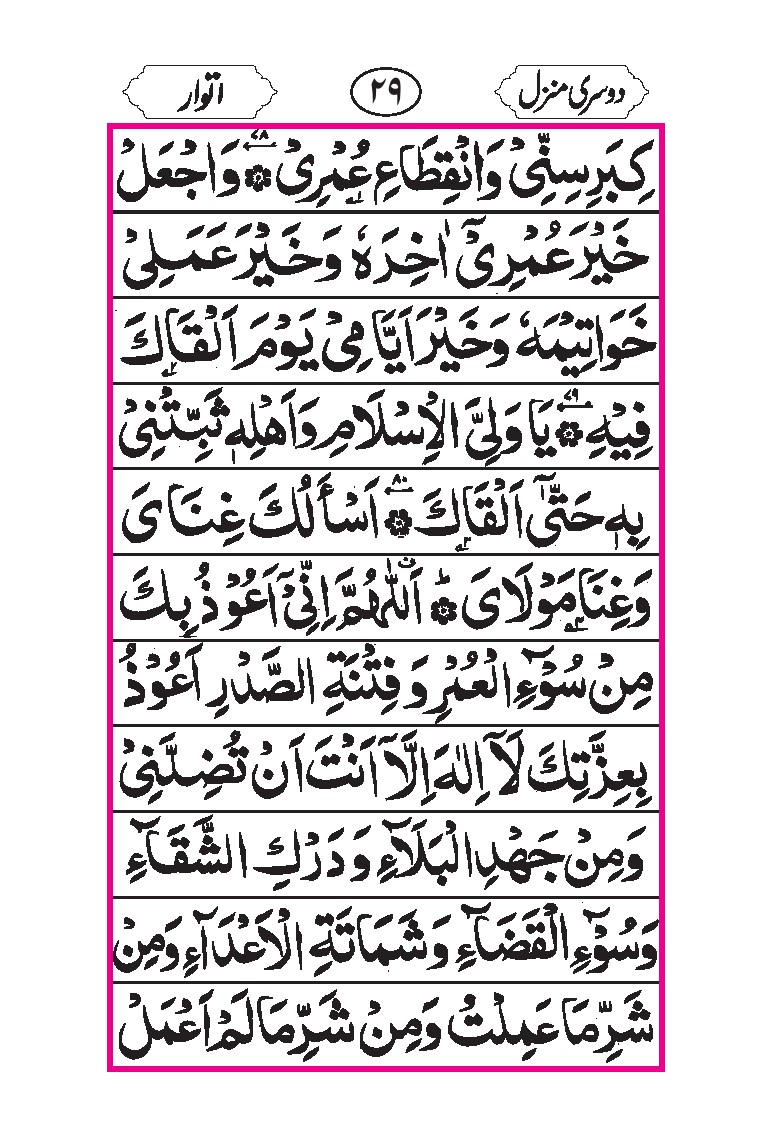 دوسری منزل
۲۹
اتوار
كِبَرِ سِنِّىْ وَانْقِطَاعِ عُمْرِىْ ۞۷۸ وَاجْعَلْ
خَيْرَ عُمْرِىْٓ اٰخِرَهٗ وَخَيْرَ عَمَلِىْ
خَوَاتِيْمَهٗ وَخَيْرَ اَيَّامِىْ يَوْمَ اَلْقَاكَ
فِيْهِ ۞۷۹ يَا وَلِىَّ الْاِسْلَامِ وَاَهْلِهٖ ثَبِّتْنِىْ
بِهٖ حَتّٰىٓ اَلْقَاكَ ۞۸۰ اَسْأَلُكَ غِنَاىَ
وَغِنَا مَوْلَاىَ ۞ؕ اَللّٰهُمَّ اِنِّىْٓ اَعُوْذُ بِكَ
مِنْ سُوْٓءِ الْعُمُرِ وَفِتْنَةِ الصَّدْرِ اَعُوْذُ
بِعِزَّتِكَ لَآ اِلٰهَ اِلَّآ اَنْتَ اَنْ تُضِلَّنِىْ
وَمِنْ جَهْدِ الْبَلَآءِ وَدَرْكِ الشَّقَآءِ
وَسُوْٓءِ الْقَضَآءِ وَشَمَاتَةِ الْاَعْدَآءِ وَمِنْ
شَرِّ مَا عَمِلْتُ وَمِنْ شَرِّ مَا لَمْ اَعْمَلْ